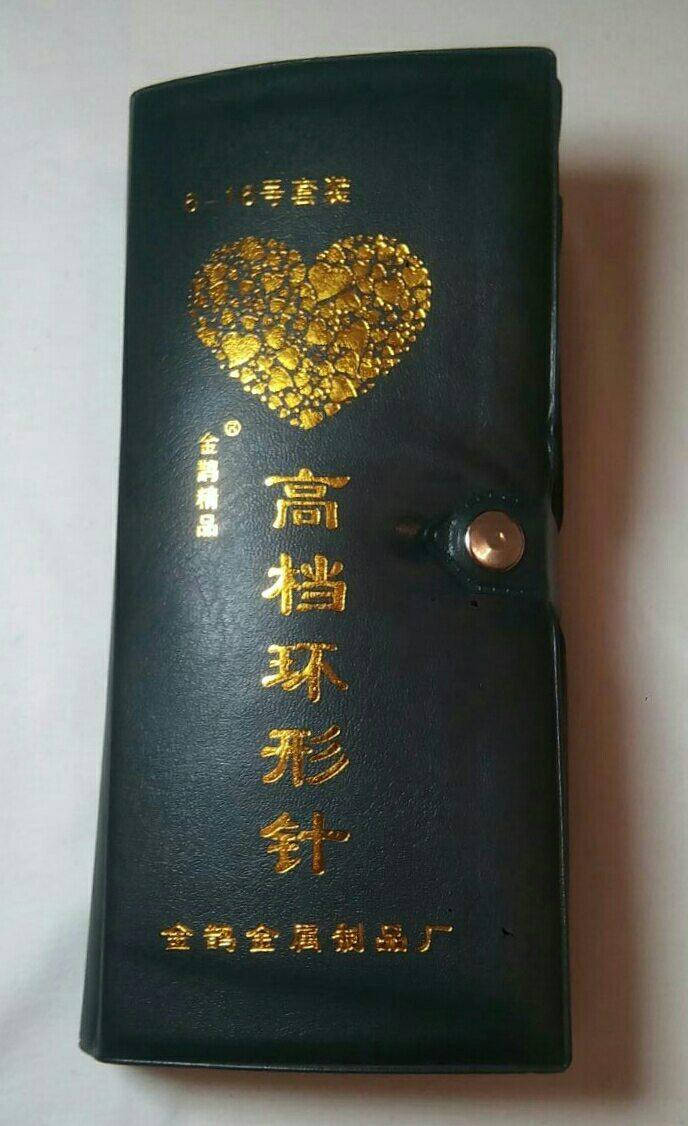 6-16号套装
®
金鹊精品
高档环形针
金鹊金属制品厂